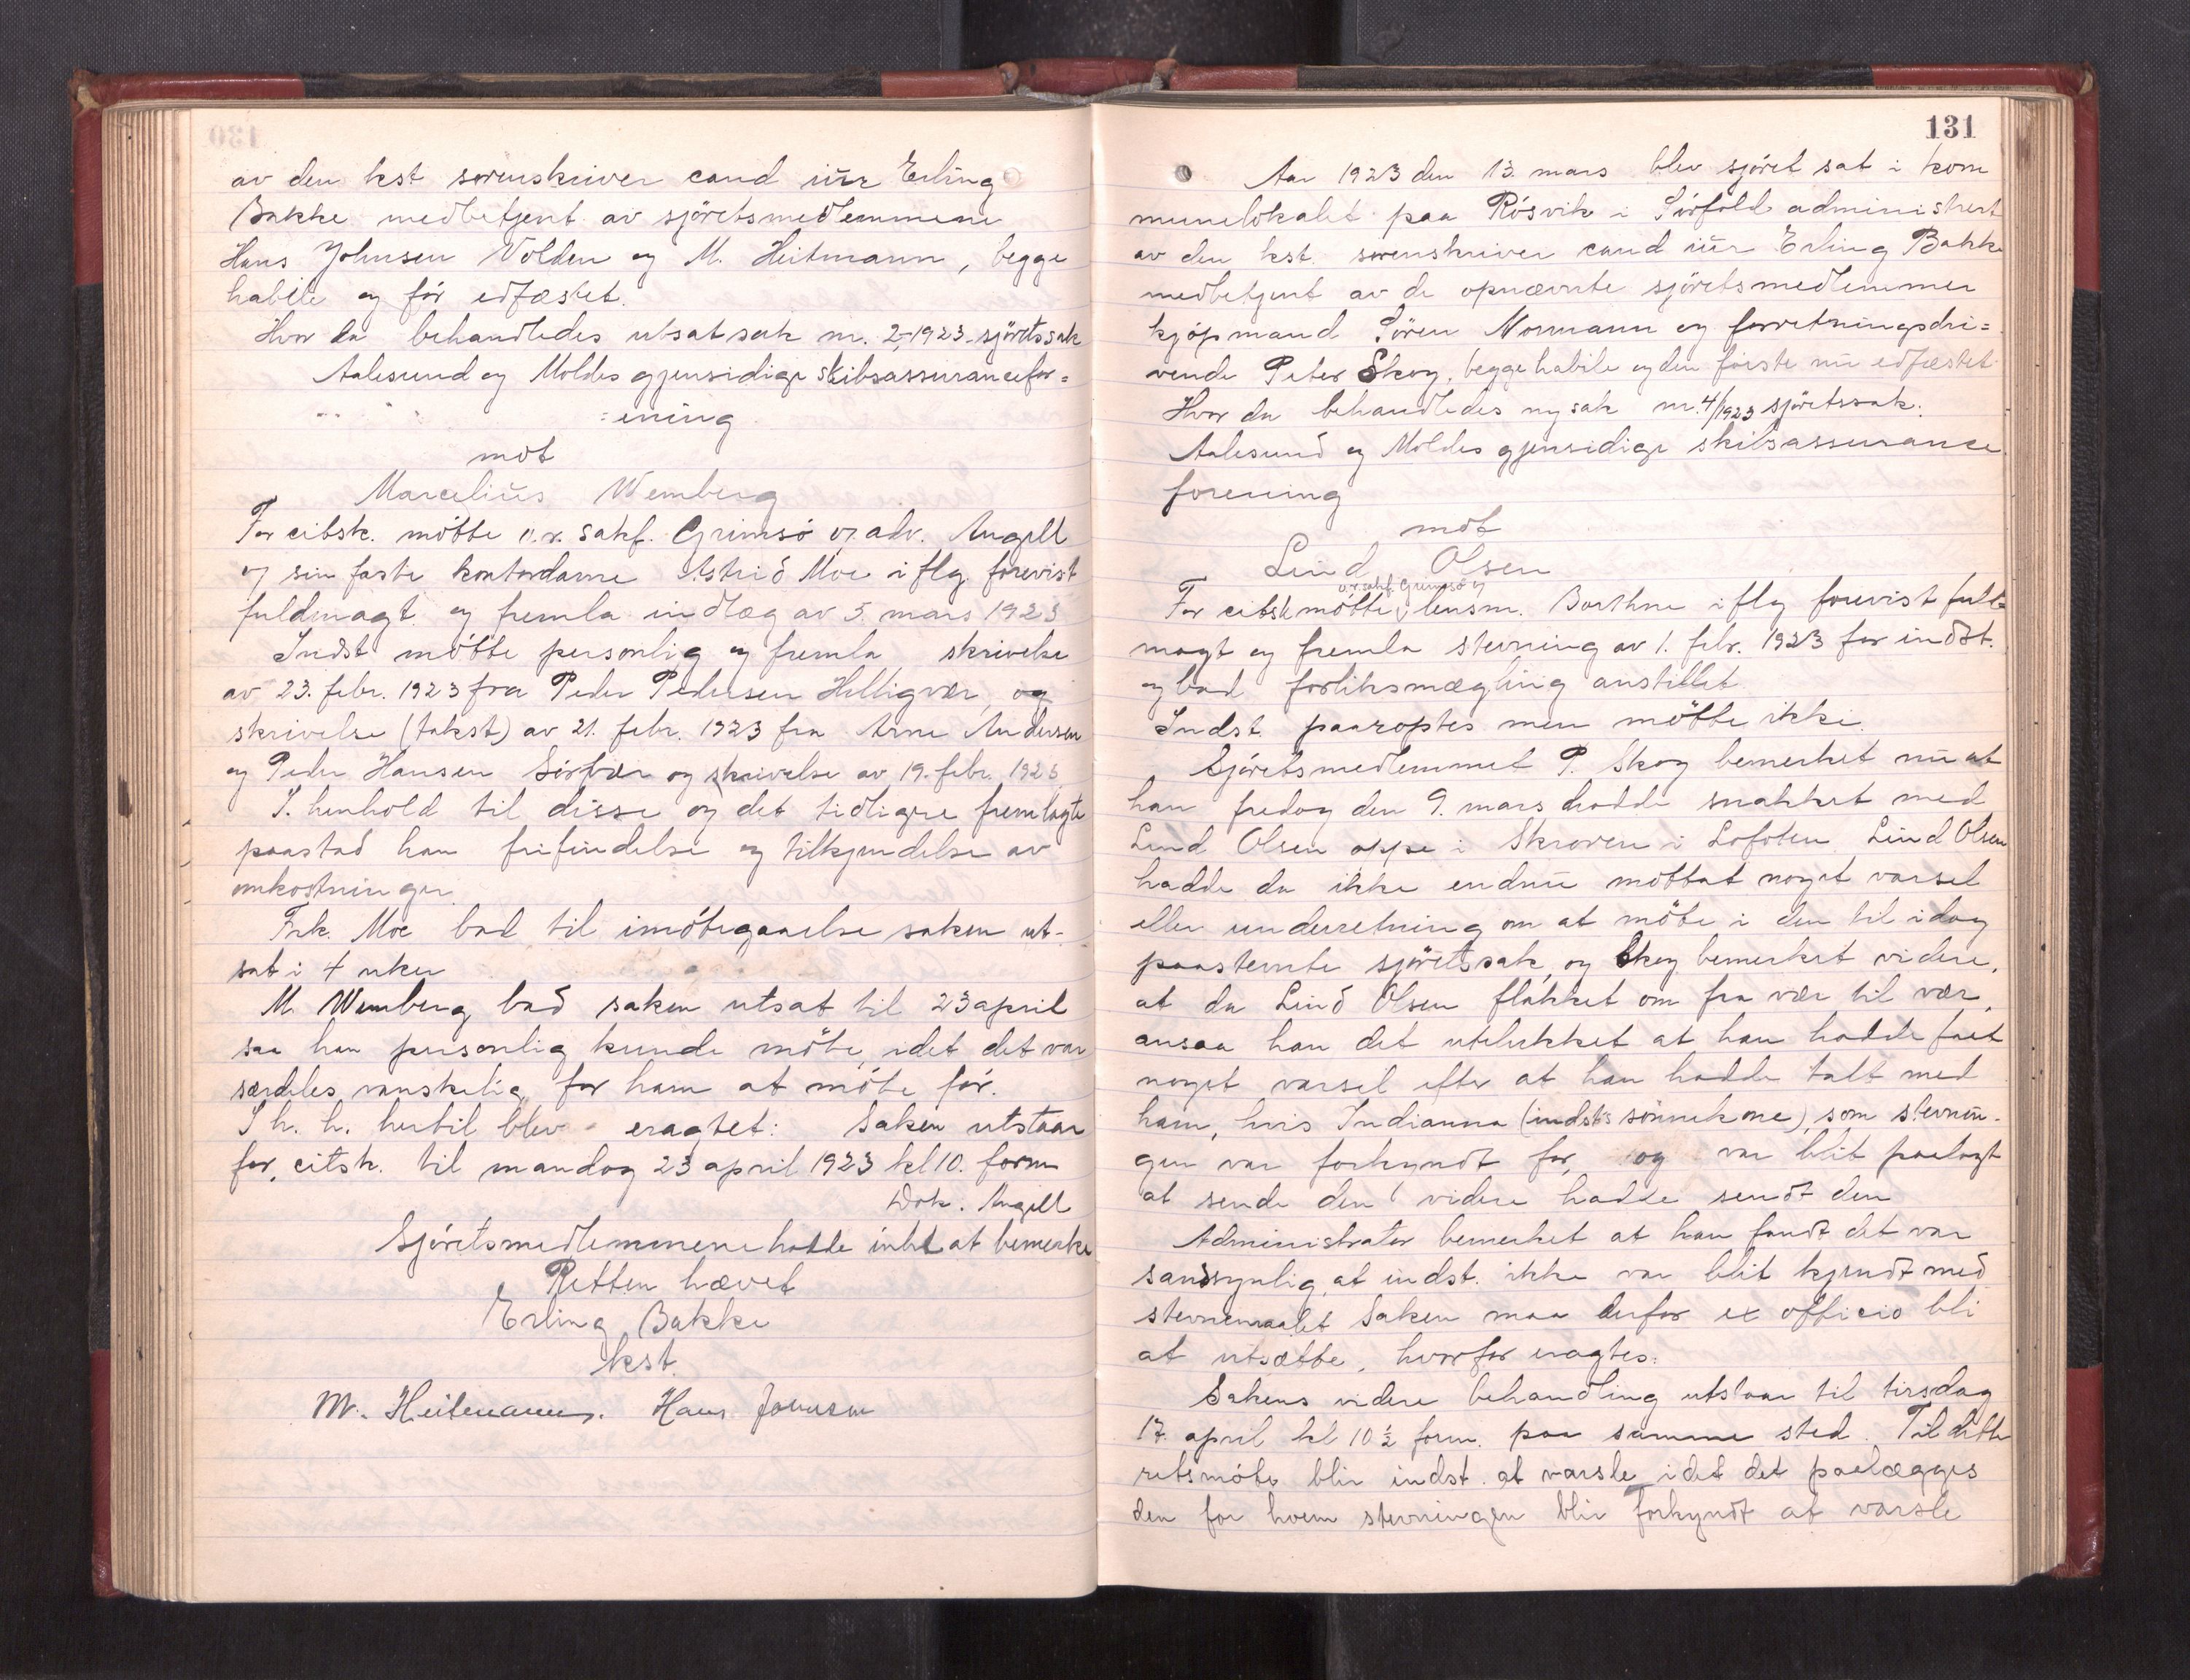 av den kst sorenskriver cand iur Erling
Bakke medbetjent av sjöretsmedlemmene
Hans Johnsen Volden og M. Heitmann, begge
habile og för edfæstet.
Hvor da behandledes utsat sak nr. 2,-1923-sjöretssak
Aalesund og Moldes gjensidige skibsassurancefor=
=ening
mot
Marcelius Wemberg
For citsk. mötte o.r. sakf. Grimsö v/ adv. Angell
v/ sin faste kontordame Astrid Moe iflg. forevist
fuldmagt og fremla indlæg av 5. mars 1923
Indst mötte personlig og fremla skrivelse
av 23. febr. 1923 fra Peder Pedersen Helligvær, og
skrivelse (takst) av 21. febr. 1923 fra Arne Andersen
og Peder Hansen Sörvær og skrivelse av 19. febr. 1923
I henhold til disse og det tidligere fremlagte
paastod han frifindelse og tilkjendelse av
omkostninger.
Frk. Moe bad til imötegaaelse saken ut-
sat i 4 uker
M. Wemberg bad saken utsat til 23 april
saa han personlig kunde möte, idet det var
særdeles vanskelig for ham at möte för.
I h. h. hertil blev eragtet: Saken utstaar
for citsk. til mandag 23 april 1923 kl 10. form
Dok. Angell
Sjöretsmedlemmene hadde intet at bemerke
Retten hævet
Erling Bakke
kst.
M. Heitmann. Hans Johnsen
131
Aar 1923 den 13. mars blev sjöret sat i kom
munelokalet paa Rösvik i Sörfold administrert
av den kst. sorenskriver cand iur Erling Bakke
medbetjent av de opnævnte sjöretsmedlemmer
kjöpmand Sören Normann og forretningsdri=
vende Peter Skog, begge habile og den förste nu edfæstet
Hvor da behandledes ny sak nr. 4/1923 sjöretssak.
Aalesund og Moldes gjensidige skibsassurance
forening
mot
Lind Olsen
o.r.sakf. Grimsö v/
For citsk mötte lensm. Borthne iflg forevist full-
magt og fremla stevning av 1. febr. 1923 for indst.
og bad forliksmægling anstillet
Indst. paaroptes men mötte ikke.
Sjöretsmedlemmet P. Skog bemerket nu at
han fredag den 9. mars hadde snakket med
Lind Olsen oppe i Skroven i Lofoten. Lind Olsen
hadde da ikke endnu mottat noget varsel
eller underretning om at möte i den til idag
paastevnte sjöretssak, og Skog bemerket videre,
at da Lind Olsen flakket om fra vær til vær,
ansaa han det utelukket at han hadde faet
noget varsel efter at han hadde talt med
ham, hvis Indianna (indsts sönnekone), som stevnin-
gen var forkyndt for, og var blit paalagt
at sende den videre hadde sendt den
Administrator bemerket at han fandt det var
sandsynlig, at indst. ikke var blit kjendt med
stevnemaalet Saken maa derfor ex officio bli
at utsætte, hvorfor eragtes:
Sakens videre behandling utstaar til tirsdag
17. april kl 10 ½ form. paa samme sted. Til dette
retsmöte blir indst. at varsle, idet det paalægges
den for hvem stevningen blir forkyndt at varsle